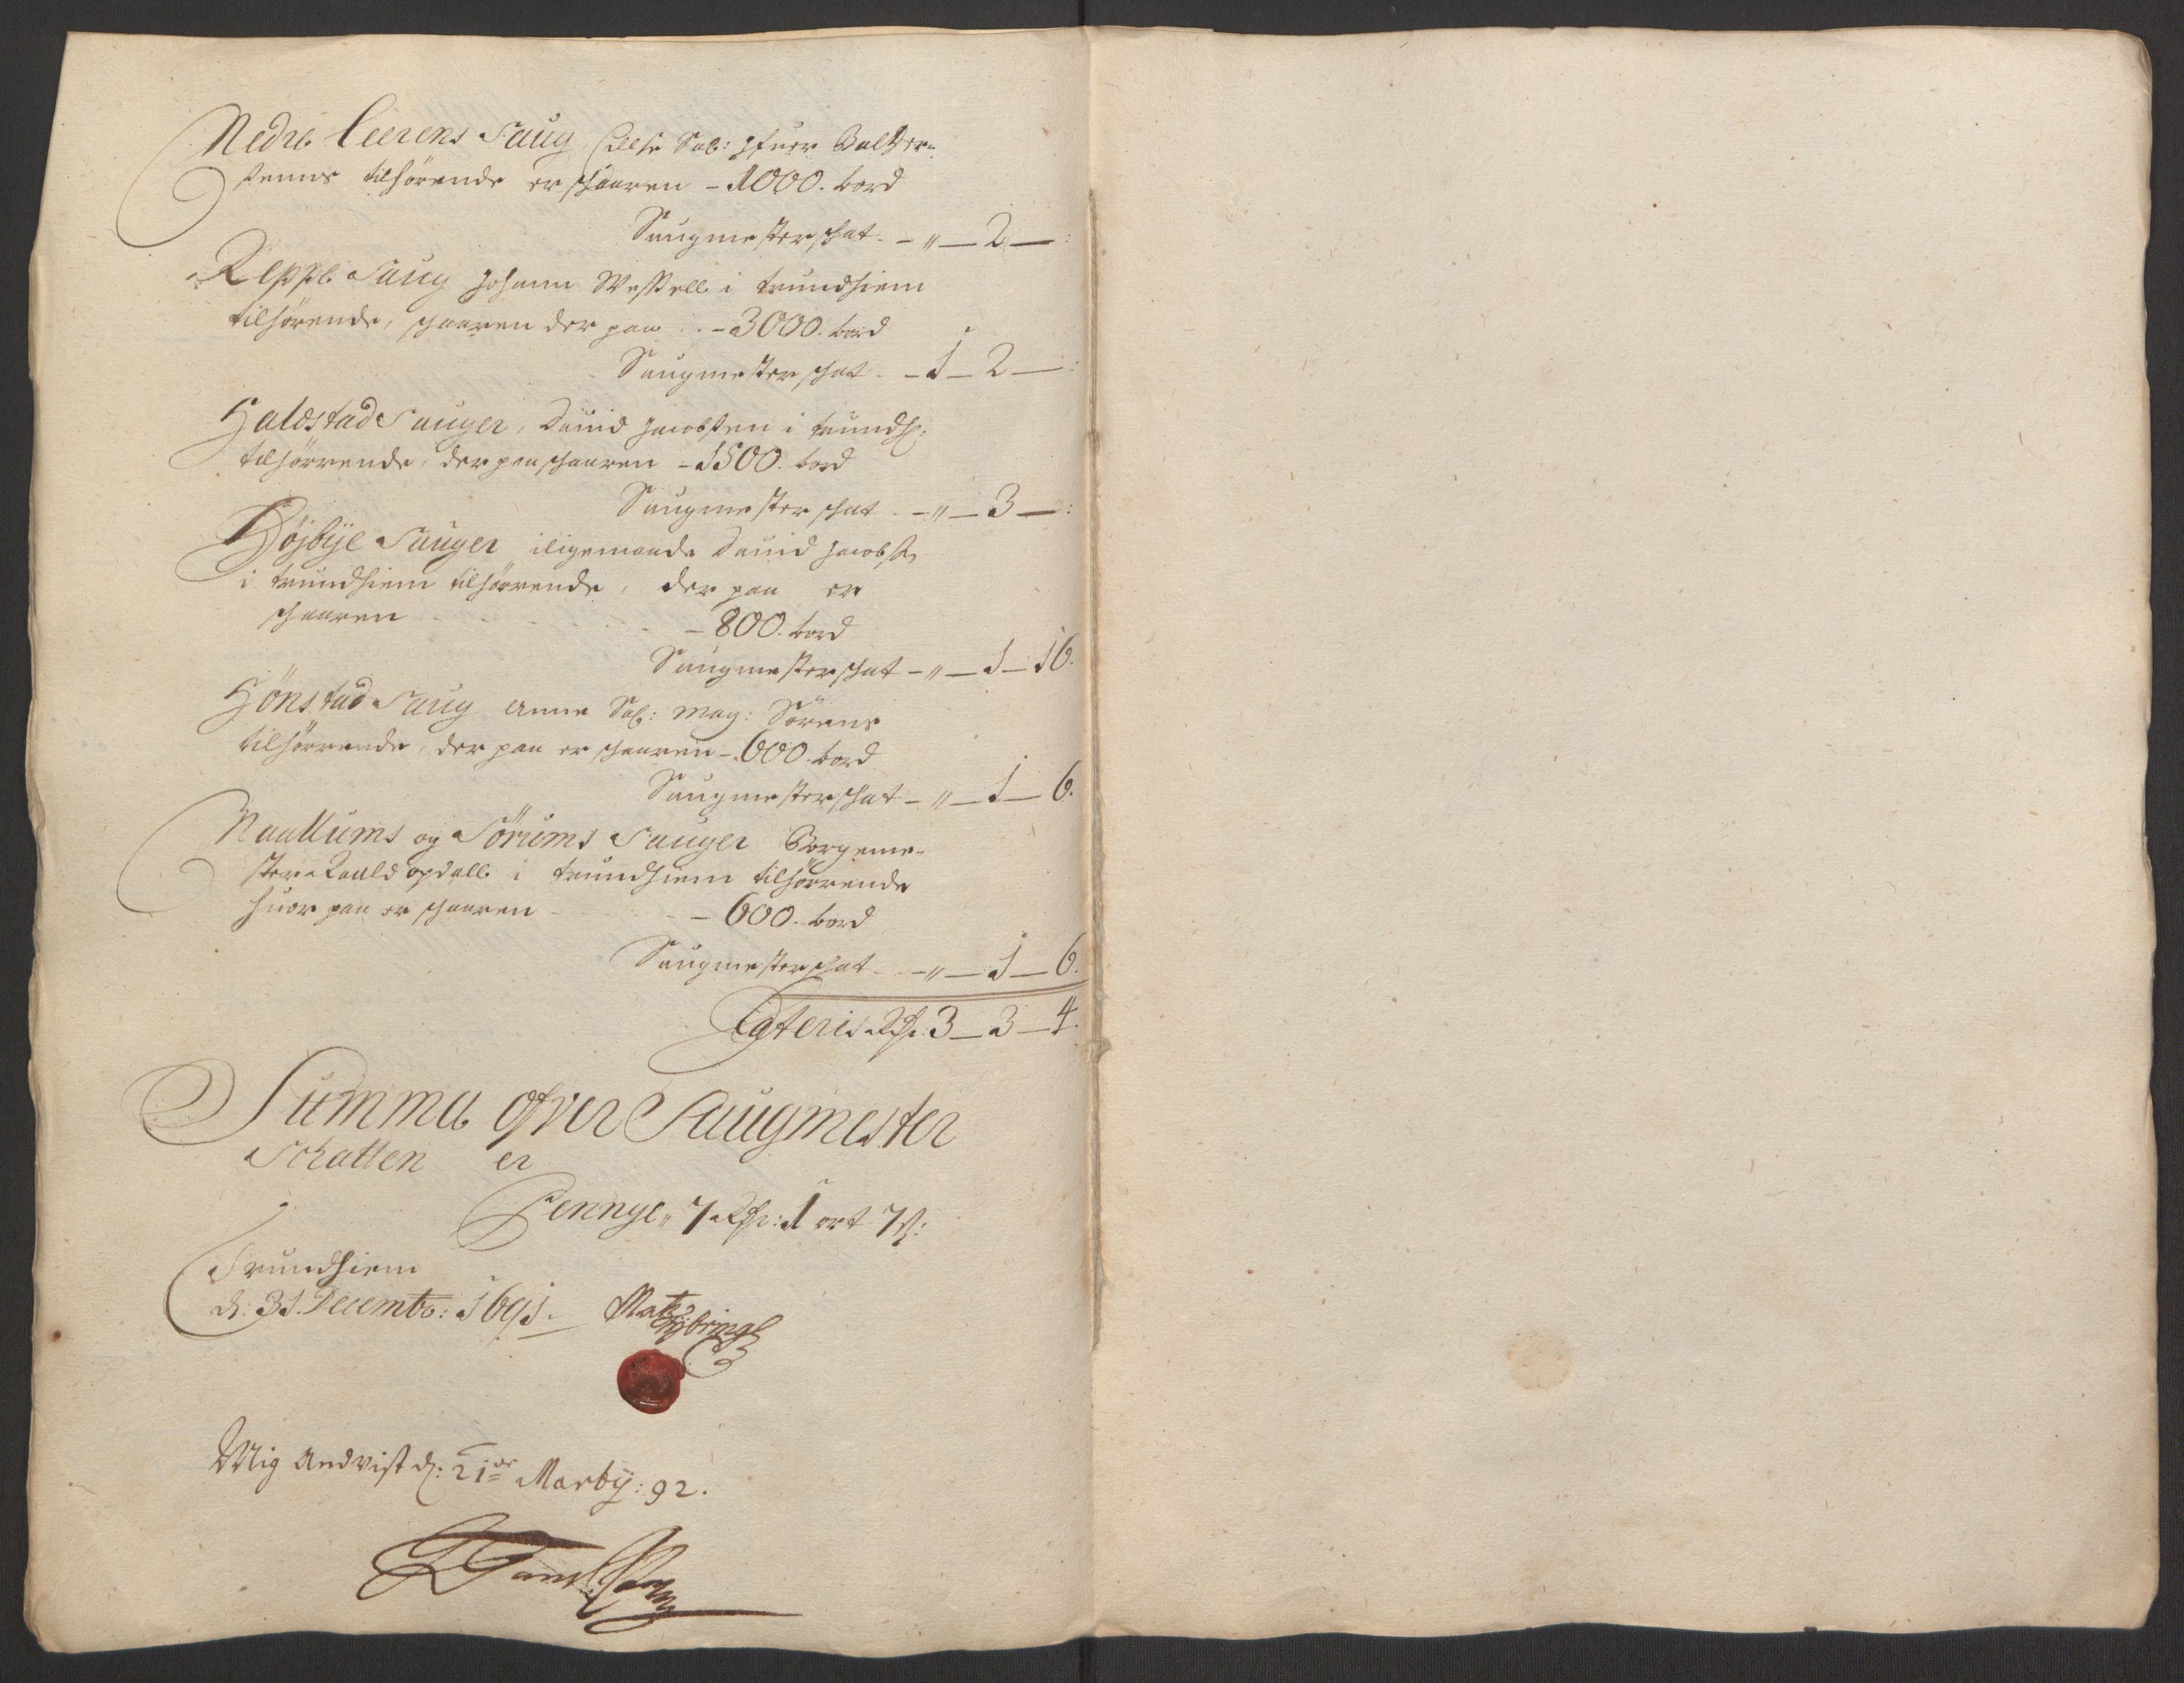 Nedre Leerens Saug Sal: Iffuer Balter-
sens tilhörende er schaaren - 1000. bord
Saugmester schat - " - 2 - :
Reppe Saug Johann Wessell i Trundhiem
tilhörende, schaaren der paa - 3000. bord
Saugmester schat - 1 - 2 - :
Haldstad Sauger, Dauid Jacobsen i Trundh:
tilhörrende, der paa schaaren - 1500. bord
Saugmester schat - " - 3 - :
Höjbÿe Sauger iligemaade Dauid Jacobs:
i Trundhiem tilhörrende, der paa er
schaaren - 800. bord
Saugmester schat - " - 1 - 16.
Hönstad Saug Anne Sal: Mag: Sörens
tilhörrende, der paa er schaaren - 600. bord
Saugmester schat - " - 1 - 6.
og Sörums Sauger Borgeme-
ster Roald opdall i Trundhiem tilhörrende
huor paa er schaaren - 600. bord
Saugmester schat - " - 1 - 6.
Lateris Rdr: 3 - 3 - 4.
Summa ofver Saugmester
Schatten er
Pennge, 7 Rdr: 1 ort 7 s:
Trundhiem
d: 31. Decembr: 1691.
Mig Andvist d: 21de Marty: 92.